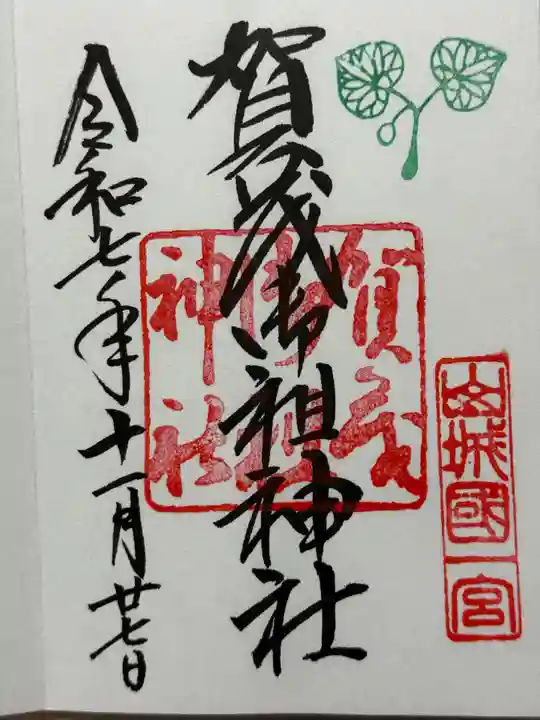 山城國一宮
賀茂御祖神社
賀茂
御祖
神社
令和七年十一月廿七日